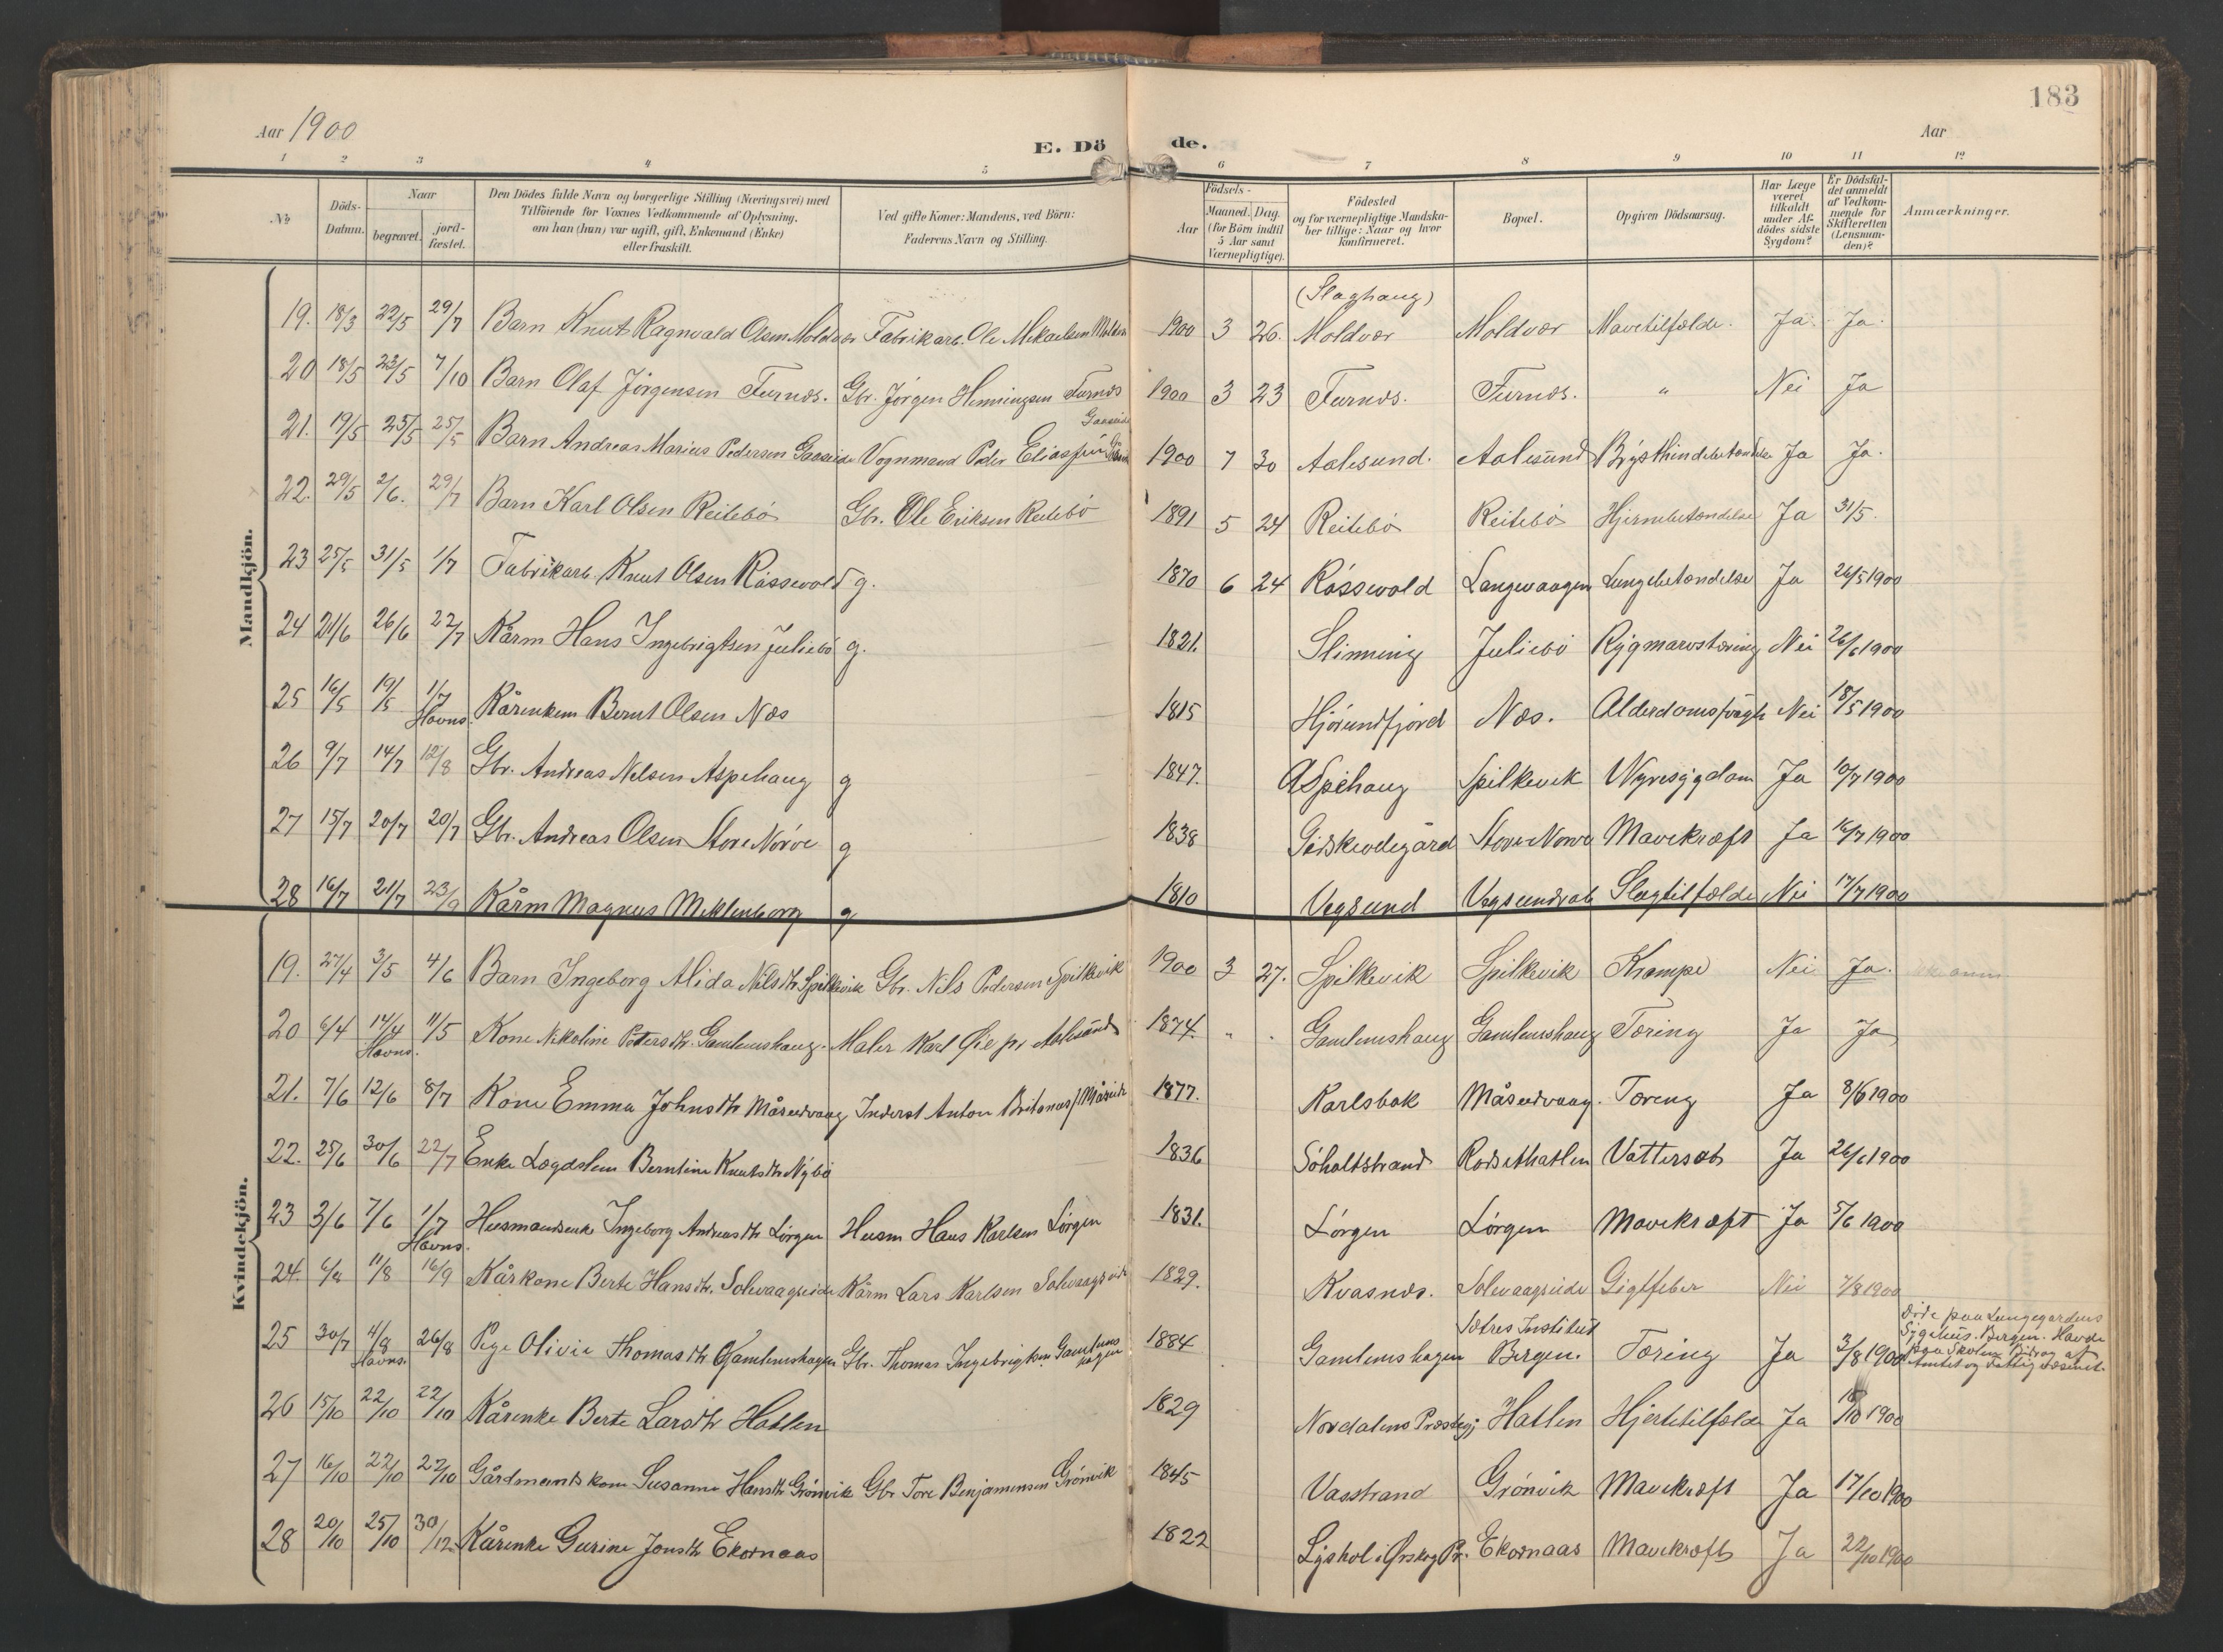 183
Aar 1900
Aar
E. Dö de.
1 2 3 4 5 6 7 8 9 10 11 12
№
Döds-
Datum.
Naar
begravet.
jord-
fæstet.
Den Dödes fulde Navn og borgerlige Stilling (Næringsvei) med
Tilföiende for Voxnes Vedkommende af Oplysning,
om han (hun) var ugift, gift, Enkemand (Enke)
eller fraskilt.
Ved gifte Koner: Mandens, ved Börn:
Faderens Navn og Stilling.
Födsels-
Aar
Maaned. Dag.
(for Börn indtil
5 Aar samt
Værnepligtige).
Födested
og for værnepligtige Mandska-
ber tillige: Naar og hvor
konfirmeret.
Bopæl.
Opgiven Dödsaarsag.
Har Læge
været
tilkaldt
under Af-
dödes sidste
Sygdom?
Er Dödsfal-
det anmeldt
af Vedkom-
mende for
Skifteretten
(Lensman-
den)?
Anmærkninger.
Mandkjön.
(Slaghaug)
19. 18/3 22/5 29/7 Barn Knut Ragnvald Olsen Moldvær Fabrikarb. Ole Mikaelsen Moldvær 1900 3 26. Moldvær Moldvær Mavetilfælde. Ja. Ja.
20 18/5 23/5 7/10 Barn Olaf Jörgensen Furnæs. Gbr. Jörgen Henningsen Furnæs 1900 3 23 Furnæs. Furnæs. " Nei Ja
21. 19/5 25/5 25/5 Barn Andreas Marius Pedersen Gaaseide Vognmand Peder Eliassen Gaaseide 1900 7 30 Aalesund. Aalesund Brysthindebetændelse Ja Ja.
22. 29/5 2/6. 29/7 Barn Karl Olsen Reitebö Gbr. Ole Eriksen Reitebö 1891 5 24 Reitebö Reitebö Hjernebetændelse Ja 31/5.
23 25/5 31/5 1/7 Fabrikarb. Knut Olsen Rössevold g. 1870 6 24 Rössevold Langevaagen Lungebetændelse Ja 26/5 1900
24 21/6 26/6 22/7 Kårm Hans Ingebrigtsen Juliebö g. 1821. Slinning Juliebö Rygmarvstæring Nei 26/6 1900
25 16/5 19/5 1/7 Havns. Kårenkem Bernt Olsen Næs 1815 Hjörundfjord Næs. Alderdomssvagh. Nei 18/5 1900
26 9/7 14/7 12/8 Gbr. Andreas Nelsen Aspehaug g 1847. Aspehaug Spilkevik Nyresygdom Ja 10/7 1900
27 15/7 20/7 20/7 Gbr. Andreas Olsen Store Nörve g 1838 Giskeödegård Store Nörve Mavekræft Ja 16/7 1900
28 16/7 21/7 23/9 Kårm Magnus Meklenborg g 1810 Vegsund Vegsundsæt Slagtilfælde Nei 17/7 1900
Kvindekjön.
19. 27/4 3/5 4/6 Barn Ingeborg Alida Nilsdtr Spilkevik Gbr. Nils Pedersen Spilkevik 1900 3 27. Spilkevik Spilkevik Krampe Nei Ja.
20 6/4 14/4 11/5 Havns. Kone Nikoline Petersdtr. Gamlemshaug. Maler Karl Öie pr Aalesund 1874. " . Gamlemshaug Gamlemshaug Tæring Ja Ja
21. 7/6 12/6 8/7 Kone Emma Johnsdtr Måseidvaag Inderst Anton Måseid 1877. Karlsbak Måseidvaag. Tæring Ja 8/6 1900
22. 25/6 30/6 22/7 Enke Lægdslem Berntine Knutsdtr Nybö 1836 Söholtstrand Rödsethatlen Vattersot Ja 26/6 1900
23 3/6 7/6 1/7 Havns. Husmandsenke Ingeborg Andreasdtr Lörgen Husm Hans Karlsen Lörgen 1831. Lörgen Lörgen Mavekræft Ja 5/6 1900
24. 6/8 11/8 16/9 Kårkone Berte Hansdtr. Solevaagseide Kårm Lars Karlsen Solevaagseide 1829. Kvasnæs. Solevaagseide Gigtfeber Nei 7/8 1900
25 30/7 4/8 Havns. 26/8 Pige Olivie Thomasdtr Gamlemshagen Gbr. Thomas Ingebrigtsen Gamlemshagen 1884 Gamlemshagen Sætres Institut Bergen. Tæring Ja 3/8 1900 Döde paa Lungegaardens
Sygehus. Bergen. Havde
paa Skolen Bidrag af
Amtet og Fattigvæsenet.
26 15/10 22/10 22/10 Kårenke Berte Larsdtr Hatlen 1829 Nordalens Præstegj Hatlen Hjertetilfælde Ja 18/10 1900
27 16/10 22/10 22/10 Gårdmandskone Susanne Hansdtr Grönvik Gbr Tore Benjaminsen Grönvik 1845 Vasstrand Grönvik Mavekræft Ja 17/10 1900
28 20/10 25/10 30/12 Kårenke Gurine Jonsdtr Ekornaas 1822 Lyshol i Ørskog Pr. Ekornaas Mavekræft Ja 22/10 1900